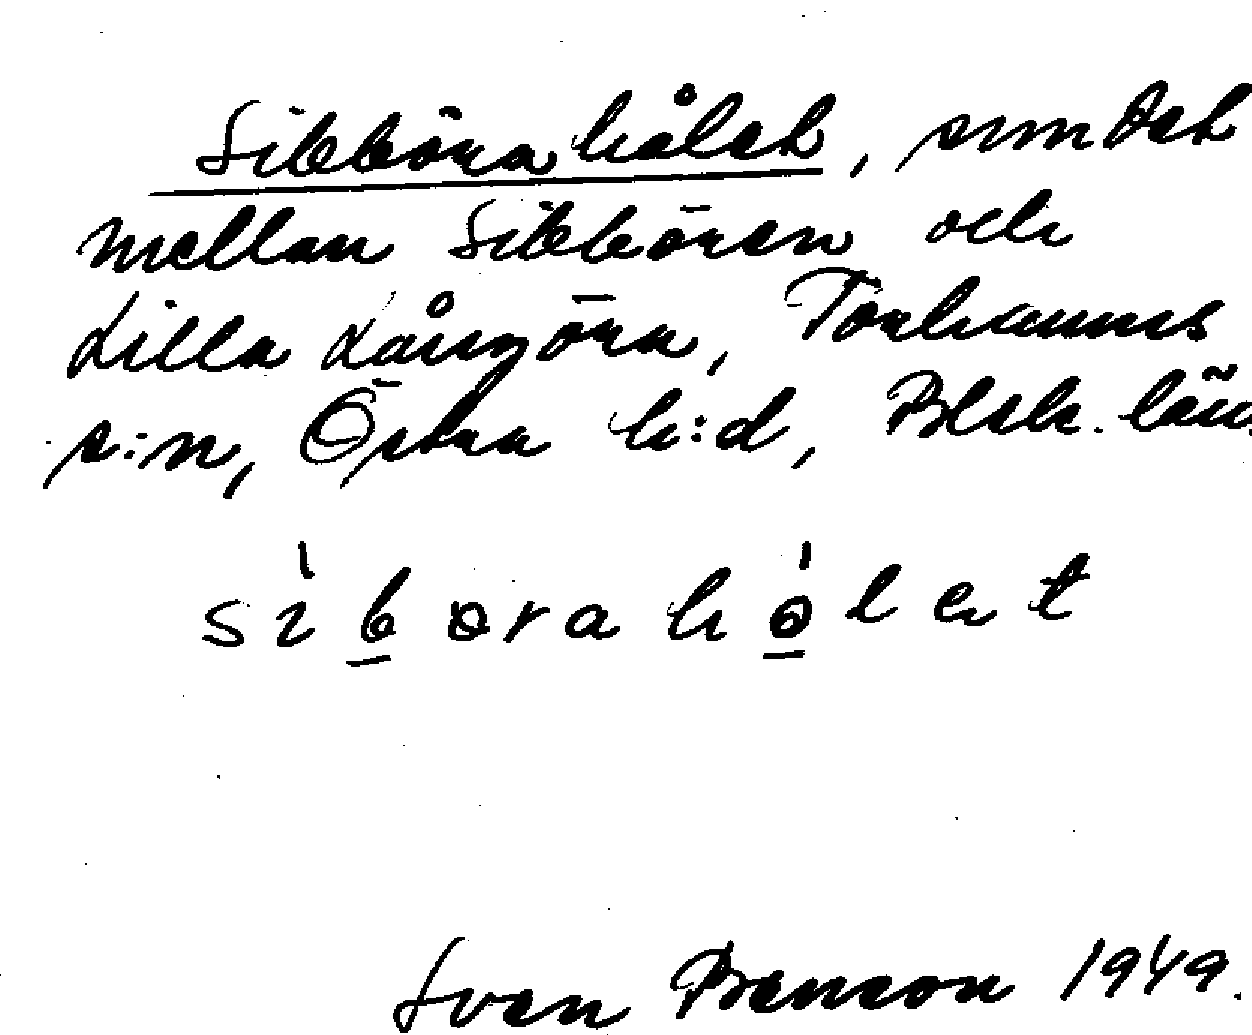 Sibböra hålet, sundet
mellan Sibbören och
Lilla Långöra, Torhamns
s:n, Östra h:d, Blek. län.
sìborahólet
Sven Benson 1949.